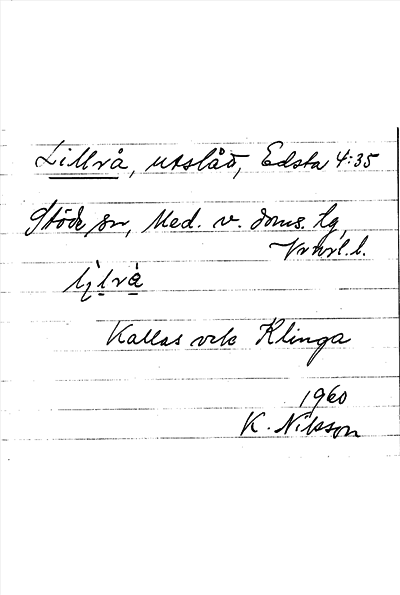 Lillrå, utslåt, Edsta 4:35
Stöde sn, Med. v. doms. lg,
Vrnrl. l.
Kallas ock Klinga
1960
K. Nilsson